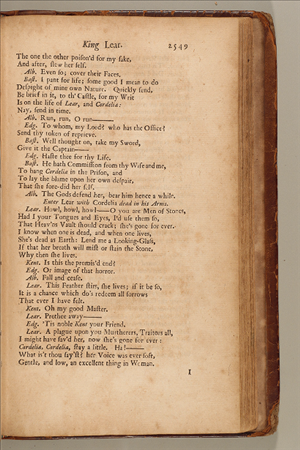 King Lear. 2549
The one the other poison'd for my sake,
And after, slew her self.
Alb. Even so; cover their Faces.
Bast. I pant for life; some good I mean to do
Despight of mine own Nature. Quickly send,
Be brief in it, to th' Castle, for my Writ
Is on the life of Lear, and Cordelia:
Nay, send in time.
Alb. Run, run, O run——
Edg. To whom, my Lord? who has the Office?
Send thy token of reprieve.
Bast. Well thought on, take my Sword,
Give it the Captain——
Edg. Haste thee for thy Life.
Bast. He hath Commission from thy Wife and me,
To hang Cordelia in the Prison, and
To lay the blame upon her own despair,
That she fore-did her self.
Alb. The Gods defend her, bear him hence a while.
Enter Lear with Cordelia dead in his Arms.
Lear. Howl, howl, howl——O you are Men of Stones,
Had I your Tongues and Eyes, I'd use them so,
That Heav'ns Vault should crack; she's gone for ever.
I know when one is dead, and when one lives,
She's dead as Earth: Lend me a Looking-Glass,
If that her breath will mist or stain the Stone,
Why then she lives.
Kent. Is this the promis'd end?
Edg. Or image of that horror.
Alb. Fall and cease.
Lear. This Feather stirs, she lives; if it be so,
It is a chance which do's redeem all sorrows
That ever I have felt.
Kent. Oh my good Master.
Lear. Prethee away——
Edg. 'Tis noble Kent your Friend.
Lear. A plague upon you Murtherers, Traitors all,
I might have sav'd her, now she's gone for ever:
Cordelia, Cordelia, stay a little. Ha!——
What is't thou say'st? her Voice was ever soft,
Gentle, and low, an excellent thing in Woman.
I